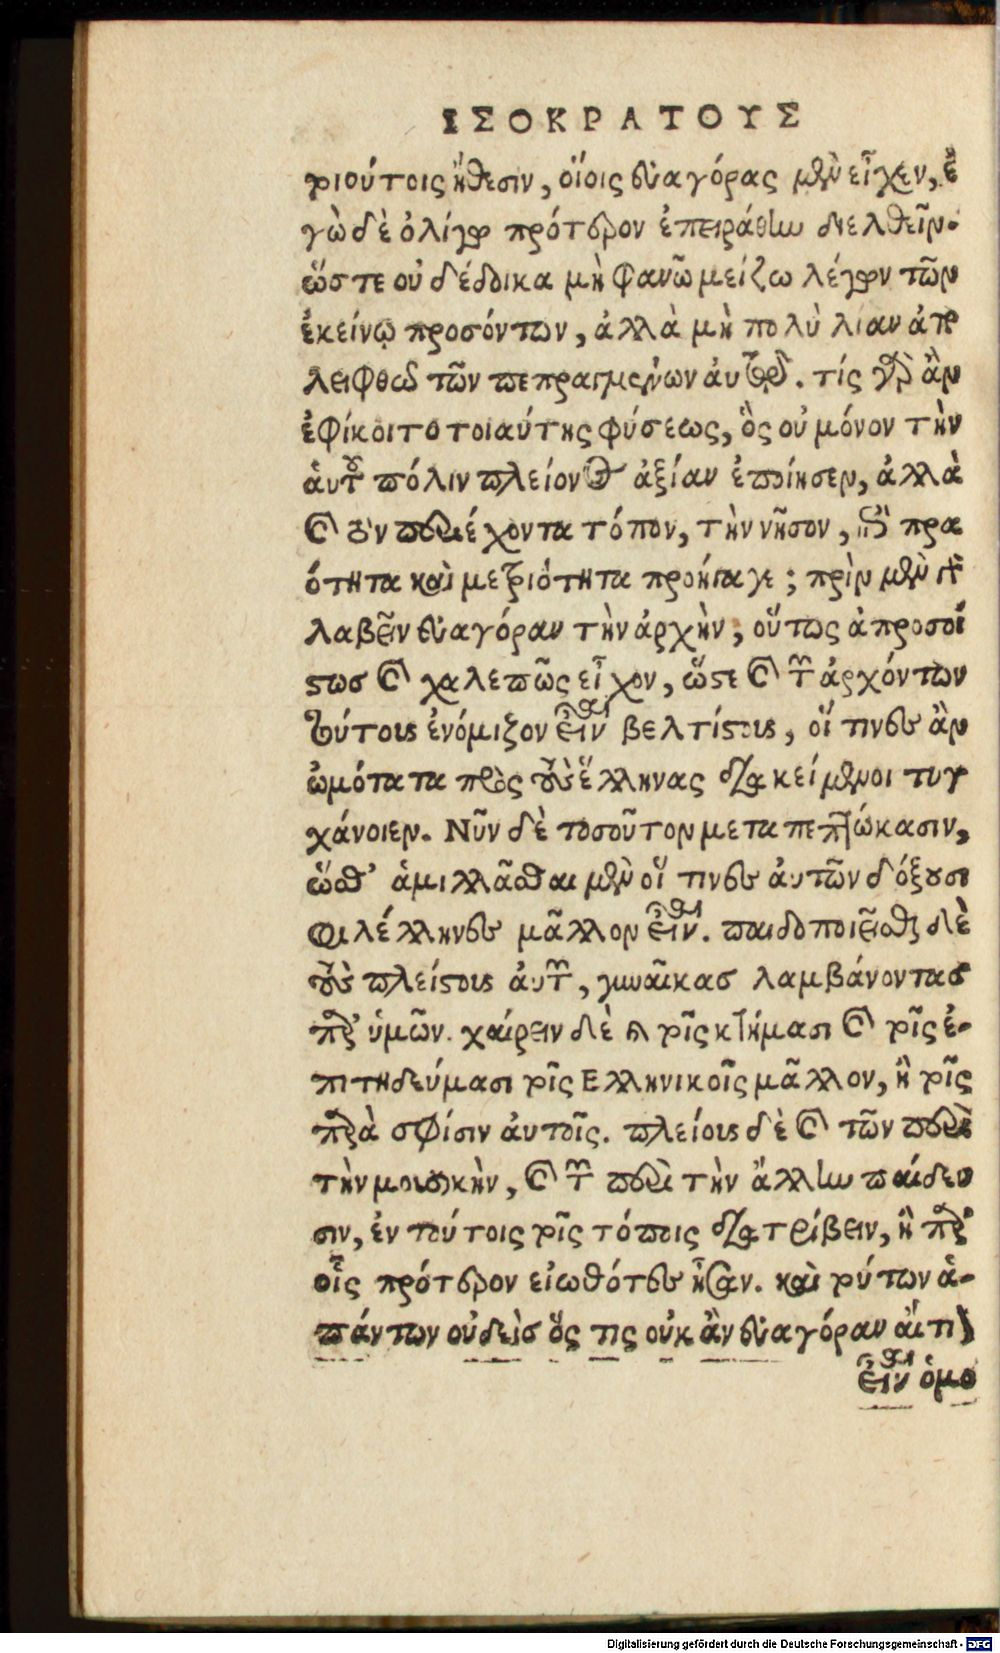 ΙΣΟΚΡΑΤΟΥΣ
τοιούτοις ἤθεσιν, οἵοις εὐαγόρας μὲν εἶχεν, ἐ
γὼ δὲ ὀλίγῳ πρότερον ἐπειράθην διελθεῖν.
ὥστε οὐ δέδοικα μὴ φανῶ μείζω λέγων τῶν
ἐκείνῳ προσόντων, ἀλλὰ μὴ πολὺ λίαν ἀπο
λειφθῶ τῶν πεπραγμένων ἀυτῷ. τίς γὰρ ἂν
ἐφίκοιτο τοιαύτης φύσεως, ὃς οὐ μόνον τὴν
ἁυτοῦ πόλιν πλείονος ἀξίαν ἐποίησεν, ἀλλὰ
καὶ τὸν περιέχοντα τόπον, τὴν νῆσον, ἐπὶ πρα
ότητα καὶ μετριότητα προήγαγε; πρὶν μὲν γὰρ
λαβεῖν εὐαγόραν τὴν ἀρχὴν, οὕτως ἀπροσοί
στως καὶ χαλεπῶς εἶχον, ὥστε καὶ τῶν ἀρχόντων
τούτους ἐνόμιζον εἶναι βελτίστους, οἵ τινες ἂν
ὠμότατα πρὸς τοὺς ἕλληνας διακείμενοι τυγ
χάνοιεν. Νῦν δὲ τοσοῦτον μεταπεπτώκασιν,
ὥσθ' ἁμιλλᾶσθαι μὲν οἵ τινες ἀυτῶν δόξουσι
φιλέλληνες μᾶλλον εἶναι. παιδοποιεῖσθαι δὲ
τοὺς πλείστους ἀυτῶν, γυναῖκας λαμβάνοντας
παρ' ὑμῶν. χαίρειν δὲ καὶ τοῖς κτήμασι καὶ τοῖς ἐ-
πιτηδεύμασι τοῖς Ελληνικοῖς μᾶλλον, ἢ τοῖς
παρὰ σφίσιν ἀυτοῖς. πλείους δὲ καὶ τῶν περὶ
τὴν μουσικὴν, καὶ τῶν περὶ τὴν ἄλλην παίδευ
σιν, ἐν τούτοις τοῖς τόποις διατρίβειν, ἢ παρ'
οἷς πρότερον εἰωθότες ἦσαν. καὶ τούτων ἁ-
πάντων οὐδεὶς ὅς τις οὐκ ἂν εὐαγόραν αἴτιον
εἶναι ὁμο
Digitalisierung gefördert durch die Deutsche Forschungsgemeinschaft - DFG